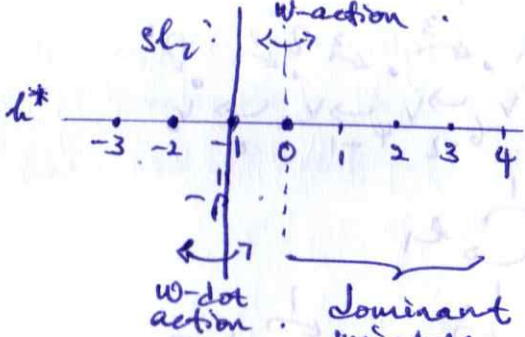 W-action .
sl₂ :
h*
-3 -2 -1 0 1 2 3 4
-ρ
W-dot
action .
dominant